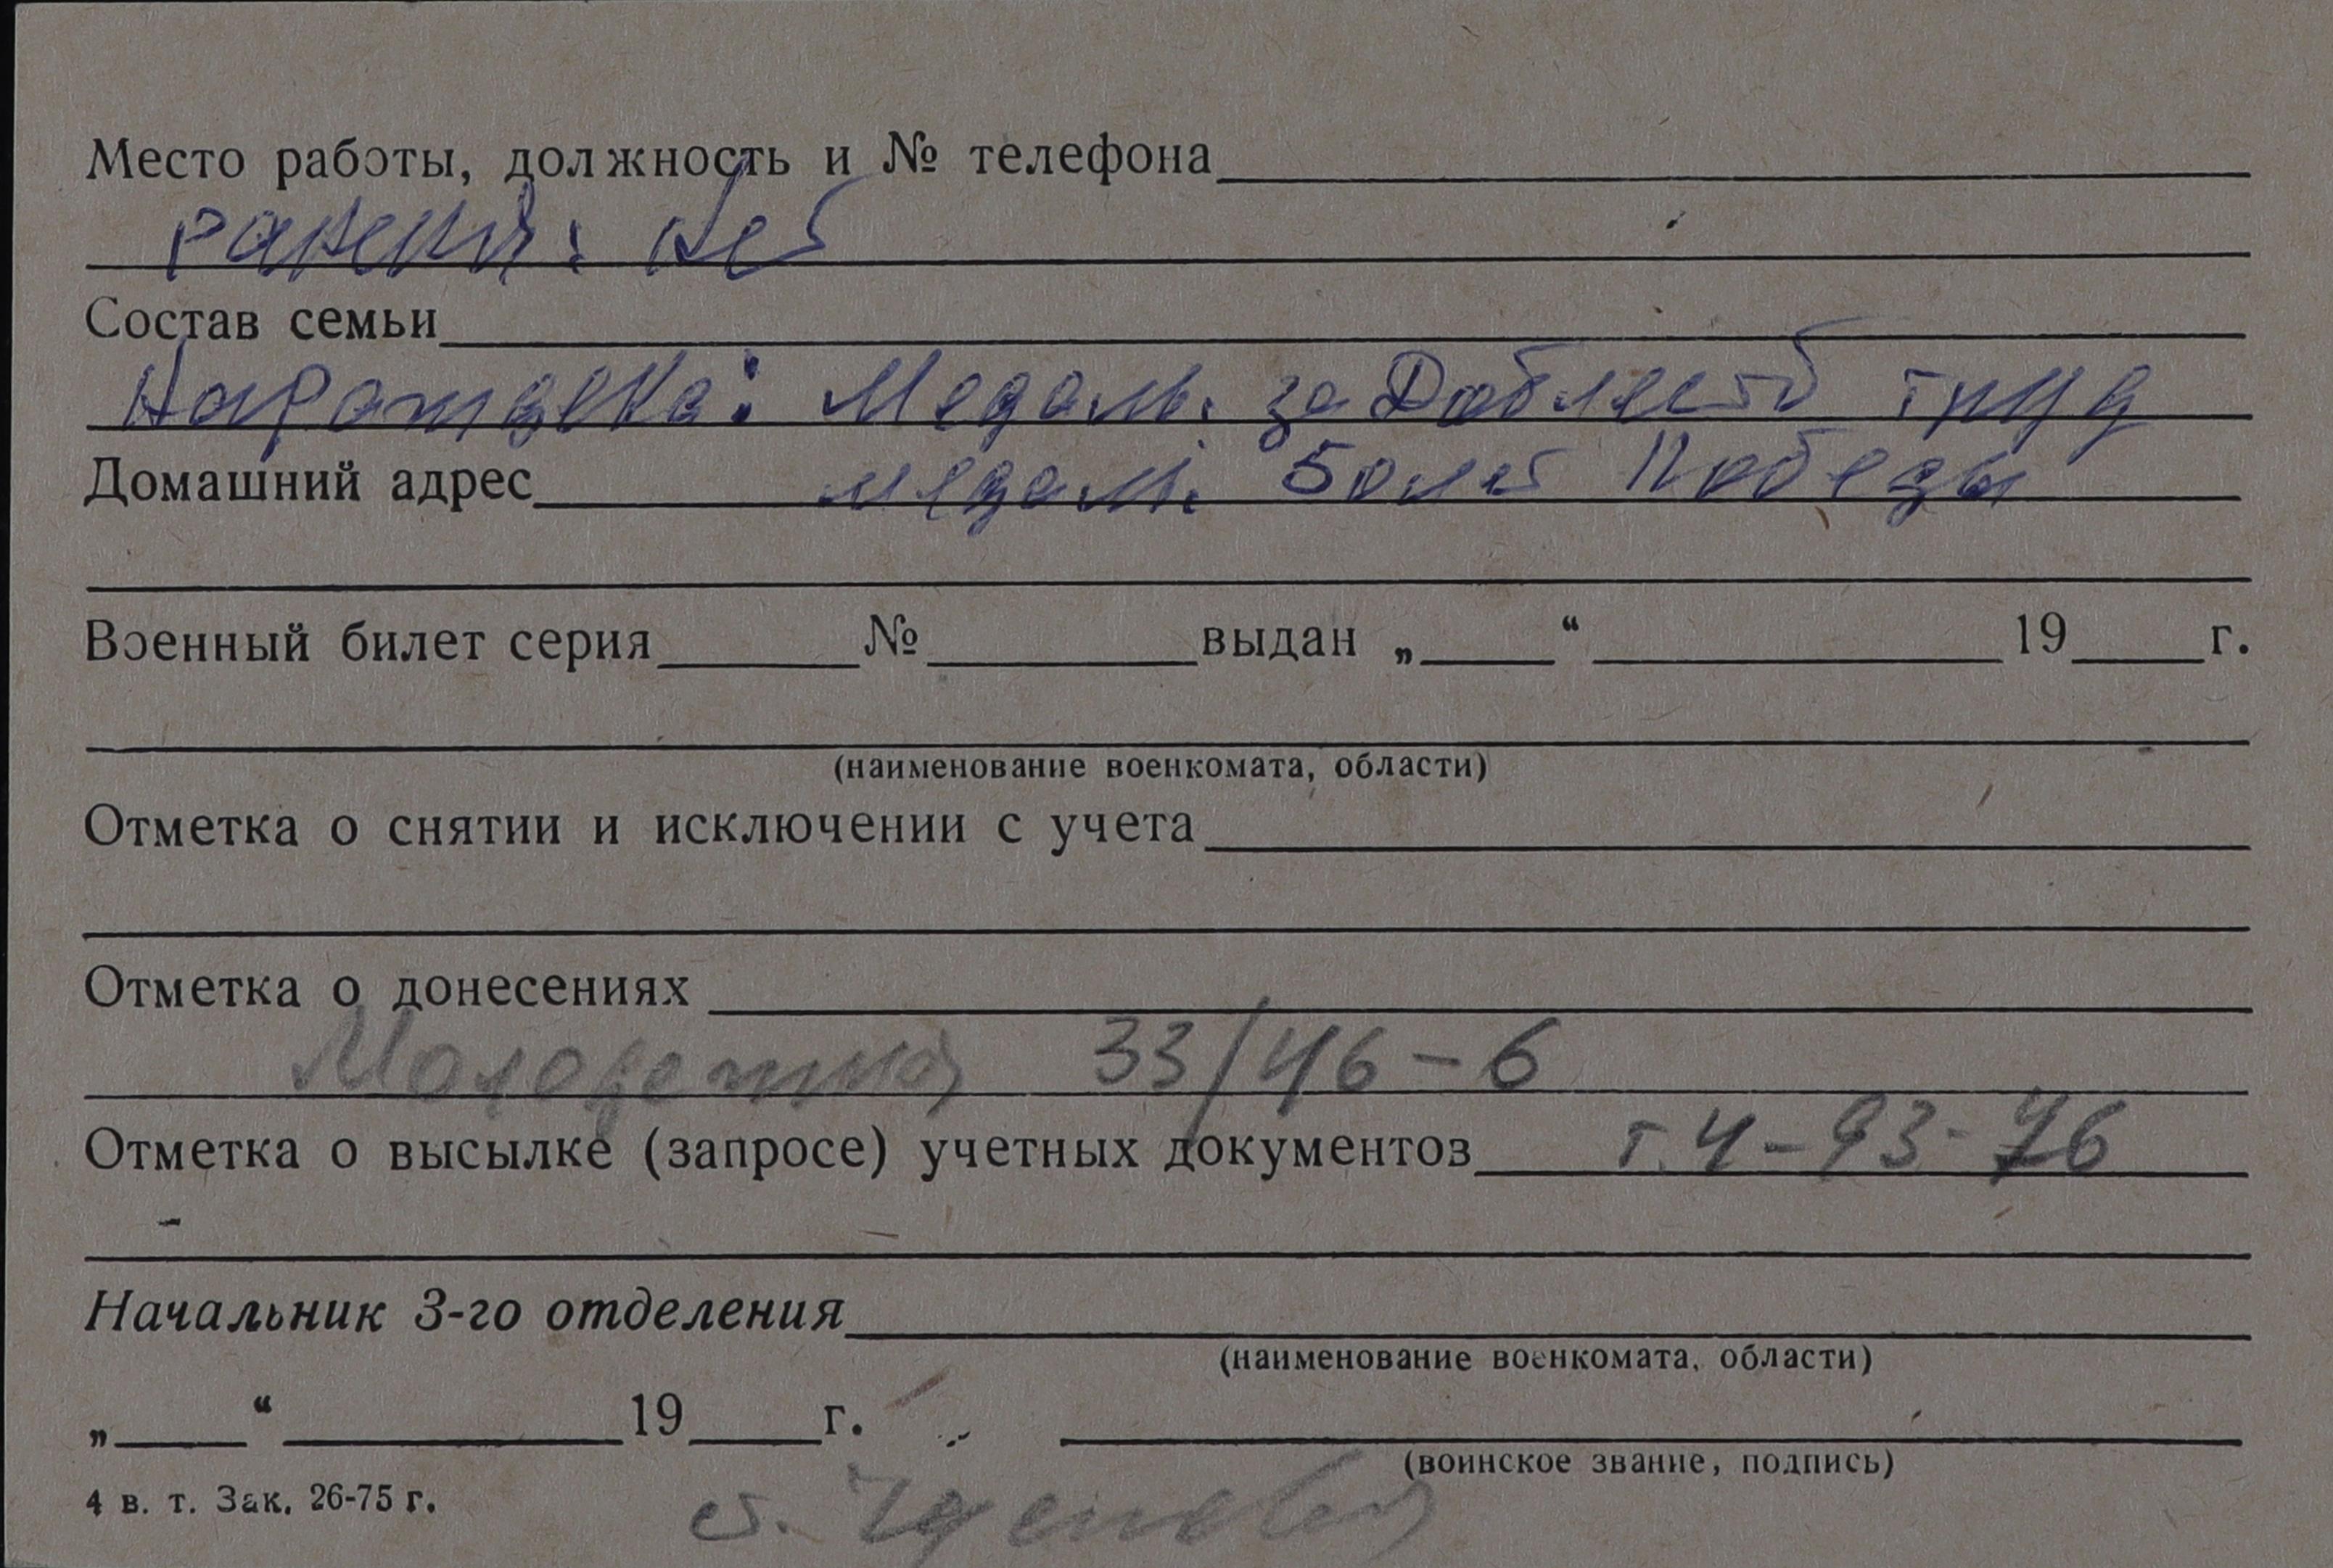 Место работы, должность и № телефона
ранения: нет
Состав семьи
Награждена: Медаль за Доблестн труд
Домашний адрес медаль 50 лет Победы
Военный билет серия № выдан „ “ 19 г.
(наименование военкомата, области)
Отметка о снятии и исключении с учета
Отметка о донесениях
Молодежная 33/46-6
Отметка о высылке (запросе) учетных документов т. 4-93-76
Начальник 3-го отделения
(наименование военкомата, области)
„ “ 19 г.
(воинское звание, подпись)
4 в. т. Зак. 26-75 г.